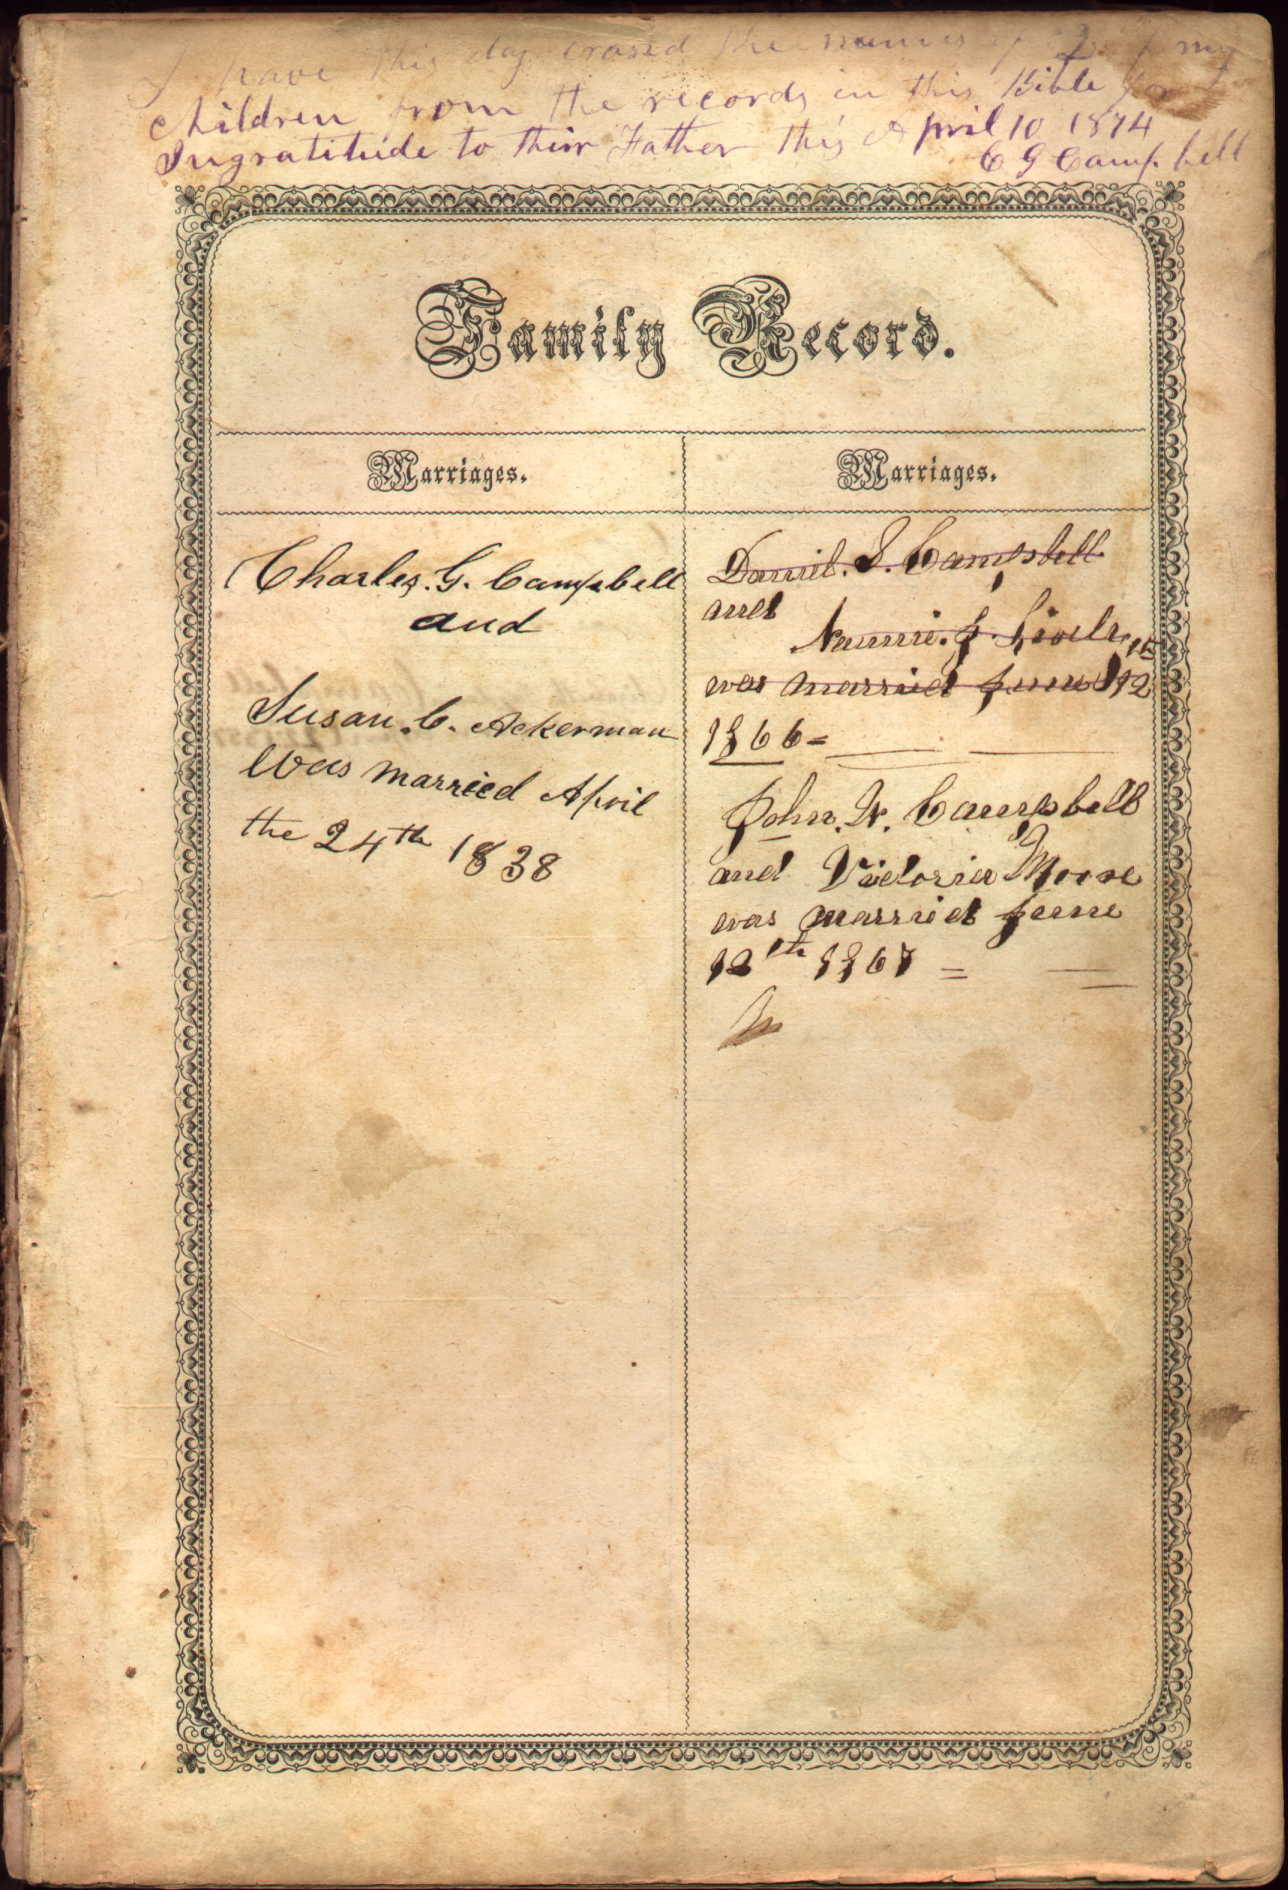 I have this day erased the names of 2 of my
children from the records in this Bible for
Ingratitude to thir Father this April 10 1874
C G Campbell
Family Record.
Marriages.
Charles. G. Campbell
and
Susan. C. Ackerman
Was married April
the 24th 1838
Marriages.
Daniel. S. Campbell
and
Nannie. J.
was married June 12
1866 =
John. W. Campbell
and Victoria Moore
was married June
12th 1867 =